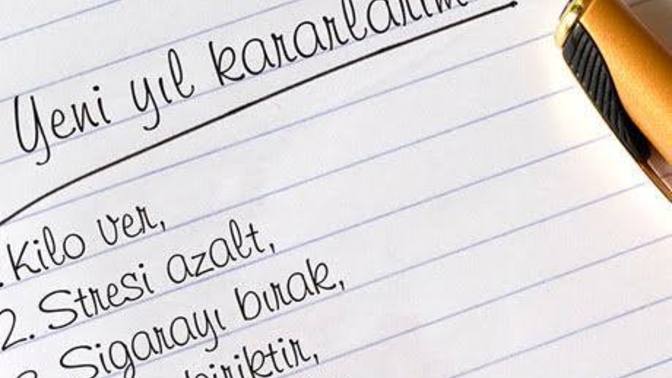 Yeni yıl kararlarım
Kilo ver,
2. Stresi azalt,
Sigarayı bırak,
biriktir,